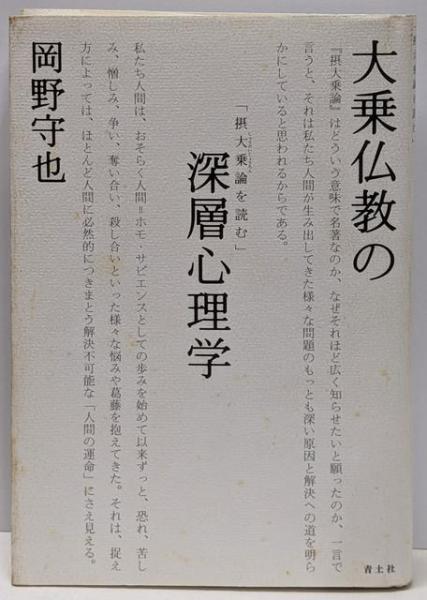 大乗仏教の
『摂大乗論』はどういう意味で名著なのか、なぜそれほど広く知らせたいと願ったのか、一言で
言うと、それは私たち人間が生み出してきた様々な問題のもっとも深い原因と解決への道を明ら
かにしていると思われるからである。
「摂大乗論を読む」
深層心理学
私たち人間は、おそらく人間=ホモ・サピエンスとしての歩みを始めて以来ずっと、恐れ、苦し
み、憎しみ、争い、奪い合い、殺し合いといった様々な悩みや葛藤を抱えてきた。それは、捉え
方によっては、ほとんど人間に必然的につきまとう解決不可能な「人間の運命」にさえ見える。
岡野守也
青土社